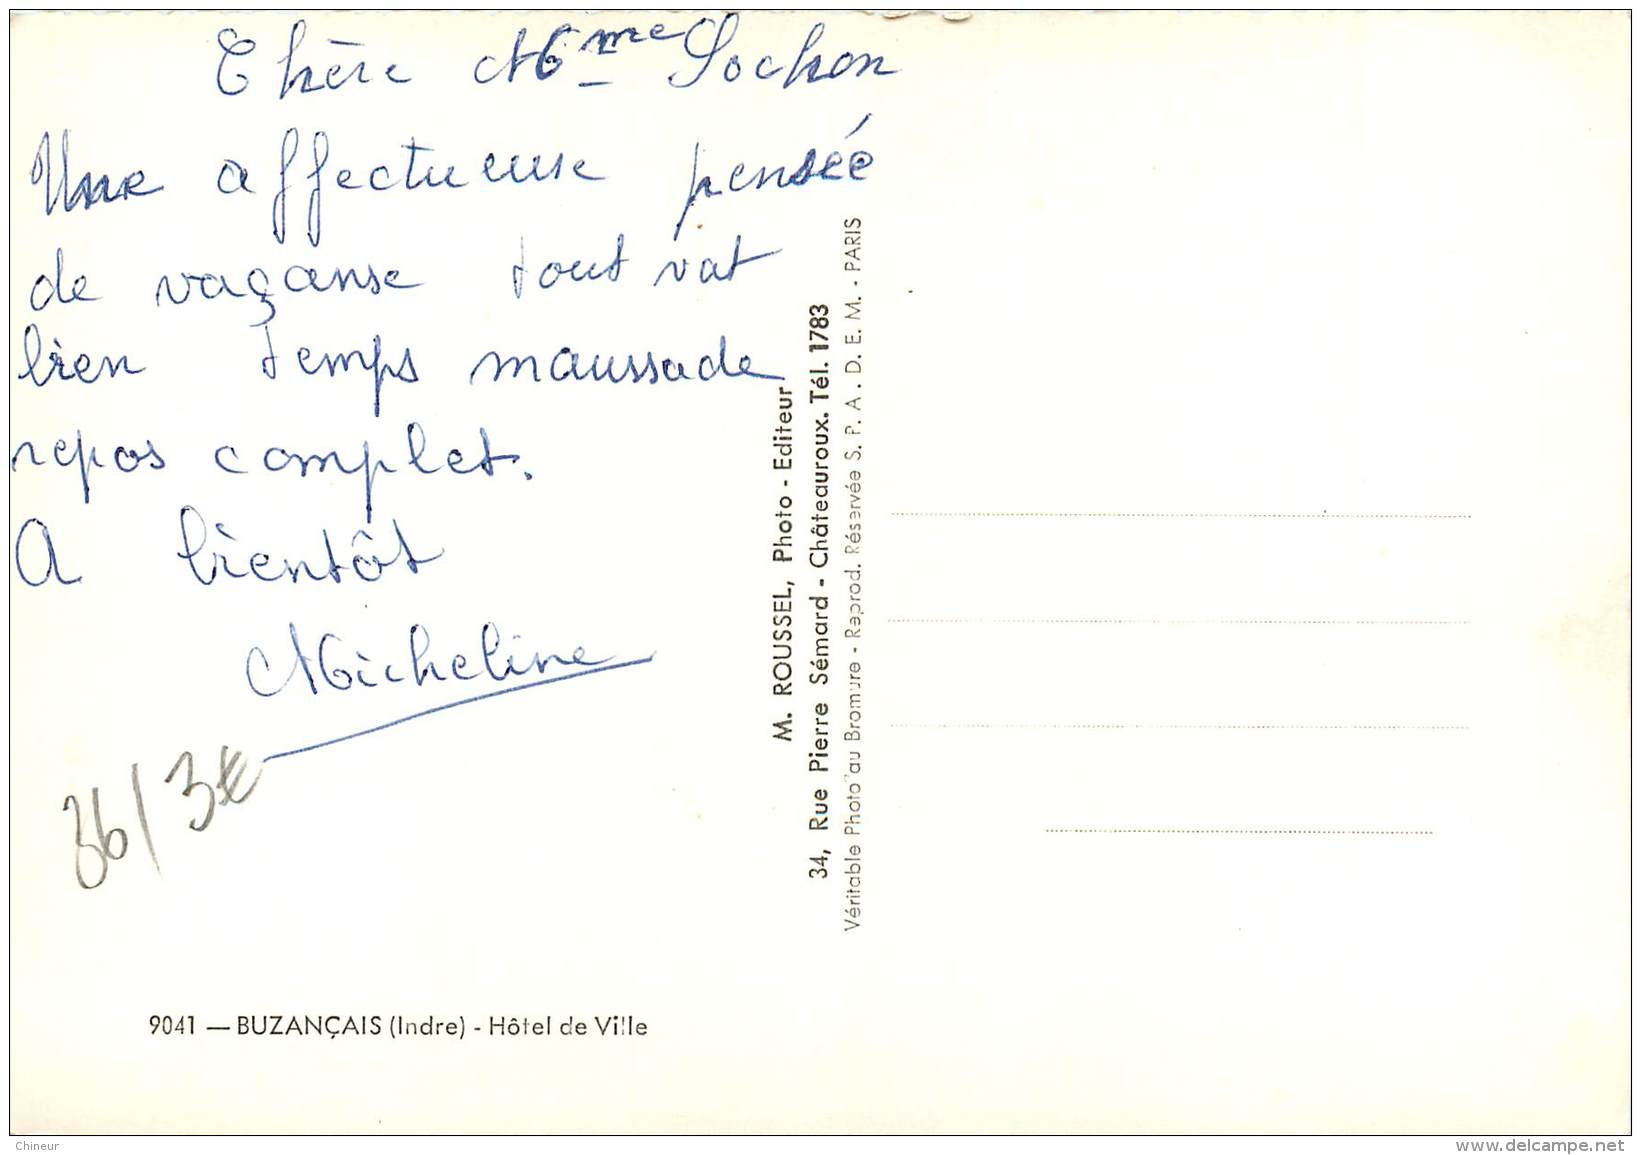 Chère Mme Sochon
Une affectueuse pensée
de vaçanse tout vat
bien temps maussade
repos complet.
A bientôt
Micheline
36/3€
9041 — BUZANÇAIS (Indre) - Hôtel de Ville
M. ROUSSEL, Photo - Editeur
34, Rue Pierre Sémard - Châteauroux. Tél. 1783
Véritable Photo au Bromure - Reprod. Réservée S. P. A. D. E. M. - PARIS
Chineur
www.delcampe.net